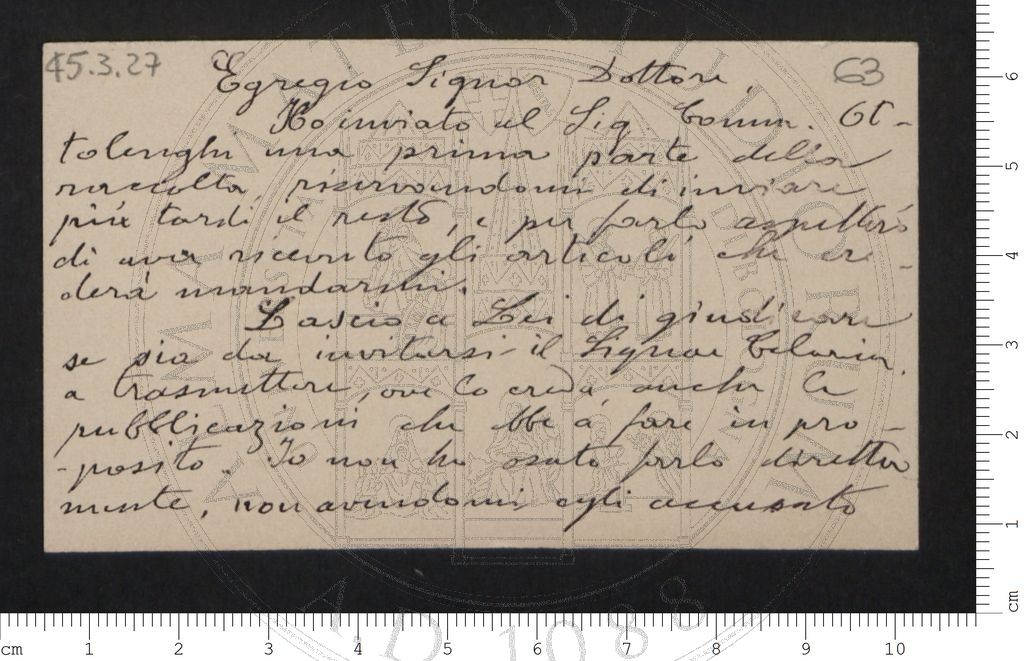 45.3.27
63
Egregio Signor Dottore,
Ho inviato al Sig Comm. Ot-
tolenghi una prima parte della
raccolta riservandomi di inviare
più tardi il resto, e per farlo aspetterò
di aver ricevuto gli articoli che cre-
derà mandarmi.
Lascio a Lei di giudicare
se sia da invitarsi il Signor
a trasmettere, ove lo creda anche le
pubblicazioni che ebbe a fare in pro-
-posito. Io non ho osato farlo diretta
mente, non avendomi egli accusato
cm 1 2 3 4 5 6 7 8 9 10
6
5
4
3
2
1
cm
A.D. 1088